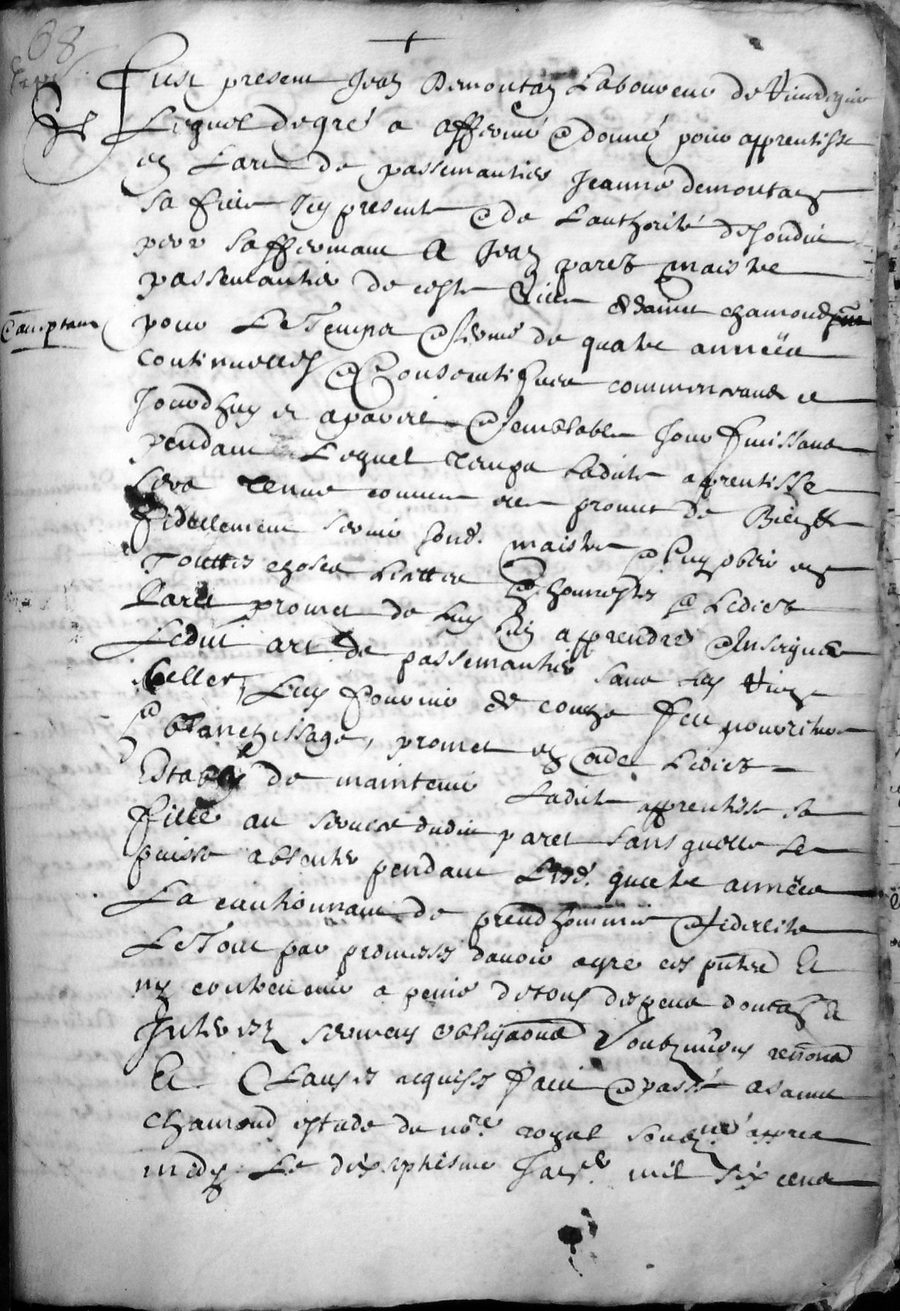 68
Fust present Jean Demontag Laboureur de
Lequel de gré a affermé & donné pour apprentisse
en Lart de passemantier Jeanne demontag
sa fille Icy presente & de Lauthorité desondit
pere saffermant A Jean paret maistre
passemantier de ceste Ville de saint chamond
pour Le Temps & terme de quatre années
Continuelles & Consecutifves commenceant ce
Jourdhuy et a pareil & semblable Jour finissant
pendant Lequel temps Ladicte aprentisse
sera tenue comme elle promet de Bien &
fidellement servir sond. maistre & Luy obeir en
Touttes choses Licittes & honnestes & Ledict
Paret promet de Luy apprendre & Inseigner
Ledit art de passemantier sans Luy rien
celler, Luy fournir de couche feu nourriture
& blanchissage, promet en oade Ledict
de maintenir Ladicte apprentisse sa
fille au service dudit paret sans quelle se
puisse absenter pendant Lesd. quatre années
La cautionnant de preudhommie & fidelité
Le Tout par promesses davoir agre ces pntes Et
ny contrevenir a peine de tous despens domag &
Interestz serment obligaons Soubzmions renons
Et Clauses requises faict & passé a saint
chamond estude du nore royal soubzné apres
midy Le dixseptiesme Janr. mil six cens